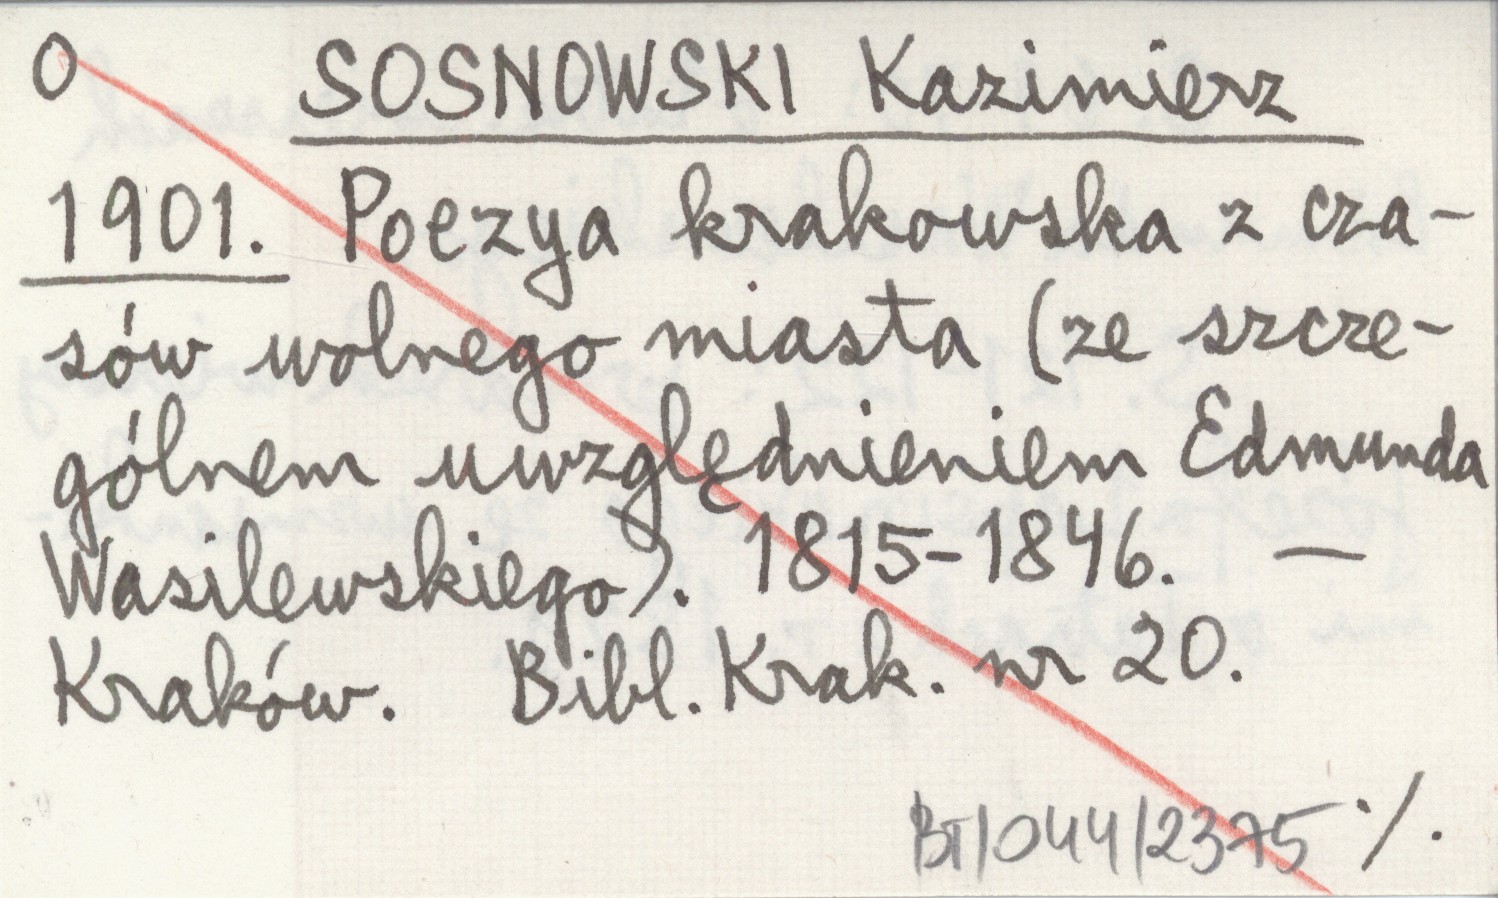 O SOSNOWSKI Kazimierz
1901. Poezya krakowska z cza-
sów wolnego miasta (ze szcze-
gólnem uwzględnieniem Edmunda
Wasilewskiego). 1815-1846. —
Kraków. Bibl. Krak. nr 20.
BT/044/2375 ·/.